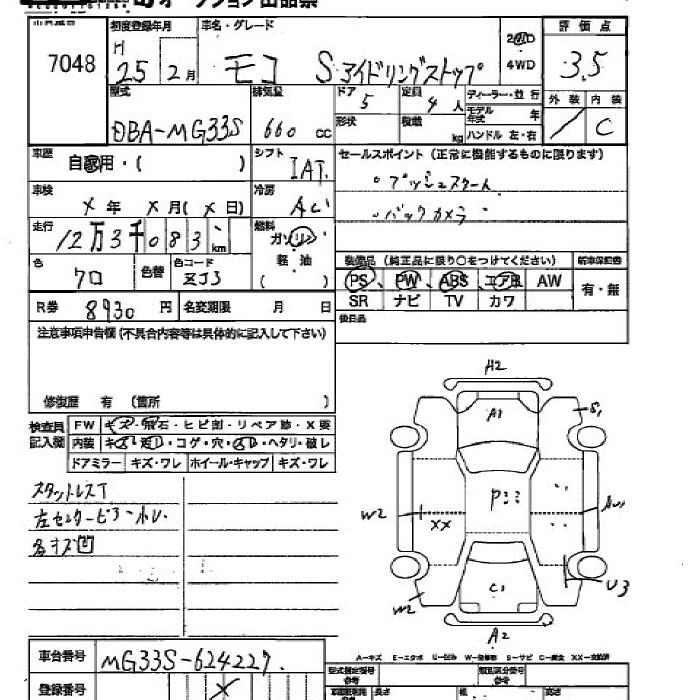 オークション出品票
7048
初度登録年月
H
25 2月
車名・グレード
モコ S アイドリングストップ
2WD
4WD
評価点
3.5
型式
DBA-MG33S
排気量
660 cc
ドア
5
定員
4 人
形状
積載
kg
ディーラー・並行
モデル年式
年
ハンドル 左・右
外装
内装
C
車歴
自家用・( )
シフト
IAT
セールスポイント (正常に機能するものに限ります)
・プッシュスタート
・バックカメラ
車検
X 年 X 月 ( X 日)
冷房
AC
走行
12万3千083 km
燃料
ガソリン
軽油
( )
色
クロ
色替
色コード
ZJ3
装備品 (純正品に限り〇をつけてください)
新車保証書
PS PW ABS エアB AW
SR ナビ TV カワ
有・無
R券
8930 円
名変期限 月 日
後日品
注意事項申告欄 (不具合内容等は具体的に記入して下さい)
修復歴 有 (箇所 )
検査員記入欄
FW キズ・飛石・ヒビ割・リペア跡・X要
内装 キズ・汚れ・コゲ・穴・・ヘタリ・破レ
ドアミラー キズ・ワレ ホイール・キャップ キズ・ワレ
スタットレスT
左センターピラー
各キズ凹
A2
A1
S1
W2
XX
P
U3
W2
C1
A2
A-キズ E-エクボ U-凹み W-補修跡 S-サビ C-腐食 XX-交換済
車台番号
MG33S-624227
登録番号
X
型式指定番号
参考
類別区分番号
参考
長さ
幅
高さ